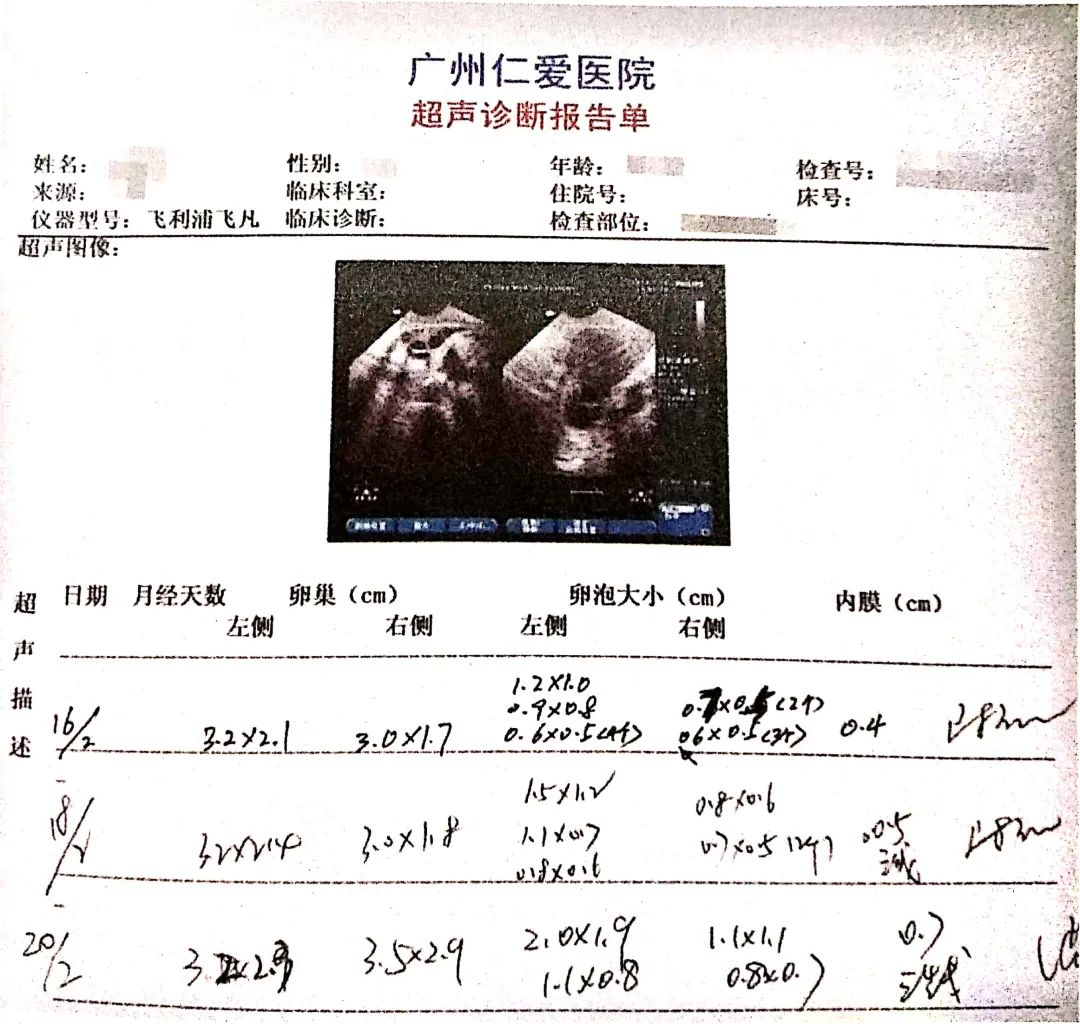 广州仁爱医院
超声诊断报告单
姓名： 性别： 年龄： 检查号：
来源： 临床科室： 住院号： 床号：
仪器型号：飞利浦飞凡 临床诊断： 检查部位：
超声图像：
PHILIPS
超声描述
日期 月经天数 卵巢（cm） 卵泡大小（cm） 内膜（cm）
左侧 右侧 左侧 右侧
1.2×1.0
0.9×0.8
16/2 3.2×2.1 3.0×1.7 0.6×0.5(4个) 0.6×0.5(3个) 0.4
1.5×1.2 0.8×0.6
18/2 3.0×1.8 1.1×0.7 0.7×0.5(2个) 0.5
0.8×0.6 三线
20/2 3.5×2.9 2.0×1.9 1.1×1.1 0.7
1.1×0.8 0.8×0.7 三线